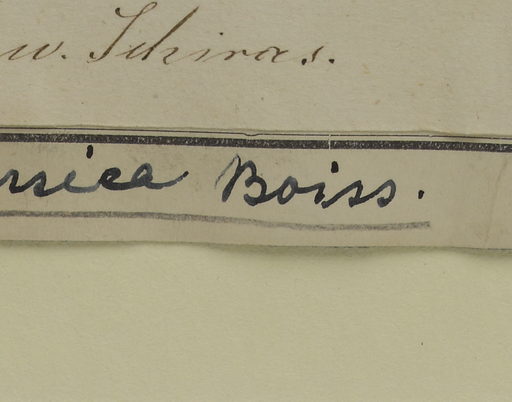 w. Schiras.
rsica Boiss.